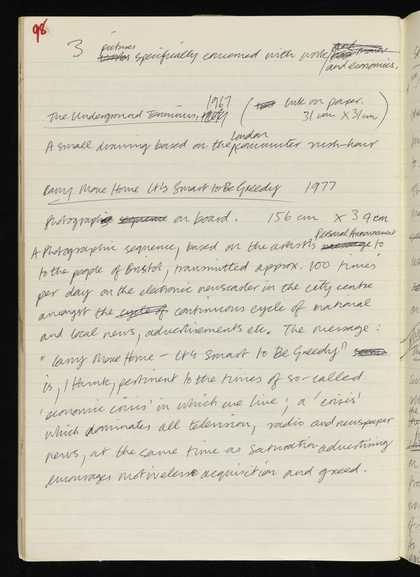 98
3 pictures specifically concerned with work and economics.
The Underground Terminus, 1967 (ink on paper. 31 cm x 31 cm)
A small drawing based on the London commuter rush-hour
Carry More Home It's Smart to Be Greedy 1977
Photographic sequence on board. 156 cm x 39 cm
A Photographic sequence, based on the artist's Personal Announcement message to
to the people of Bristol, transmitted approx. 100 times
per day on the electronic newscaster in the city centre
amongst the cycle of continuous cycle of national
and local news, advertisements etc. The message:
"Carry More Home – It's Smart to Be Greedy"
is, I think, pertinent to the times of so-called
'economic crisis' in which we live; a 'crisis'
which dominates all television, radio and newspaper
news, at the same time as saturation advertising
encourages motiveless acquisition and greed.